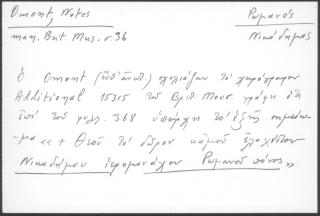 Omont, Notes
Ρωμανός
man. Brit. Mus. σ. 36
Νικόδημος
Ὁ Omont σχολιάζων τὸ χειρόγραφον
Additional 15315 τοῦ Βρετ. Μουσ. γράφει ὅτι
ἐπὶ τοῦ φυλλ. 368 ὑπάρχει τὸ ἑξῆς σημείω-
μα << + Θεοῦ τὸ δῶρον κἀμοῦ ἐλαχίστου
Νικοδήμου ἱερομονάχου Ρωμανοῦ πόνος >>.